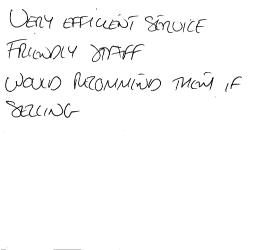 VERY EFFICIENT SERVICE
FRIENDLY STAFF
WOULD RECOMMEND THEM IF
SELLING